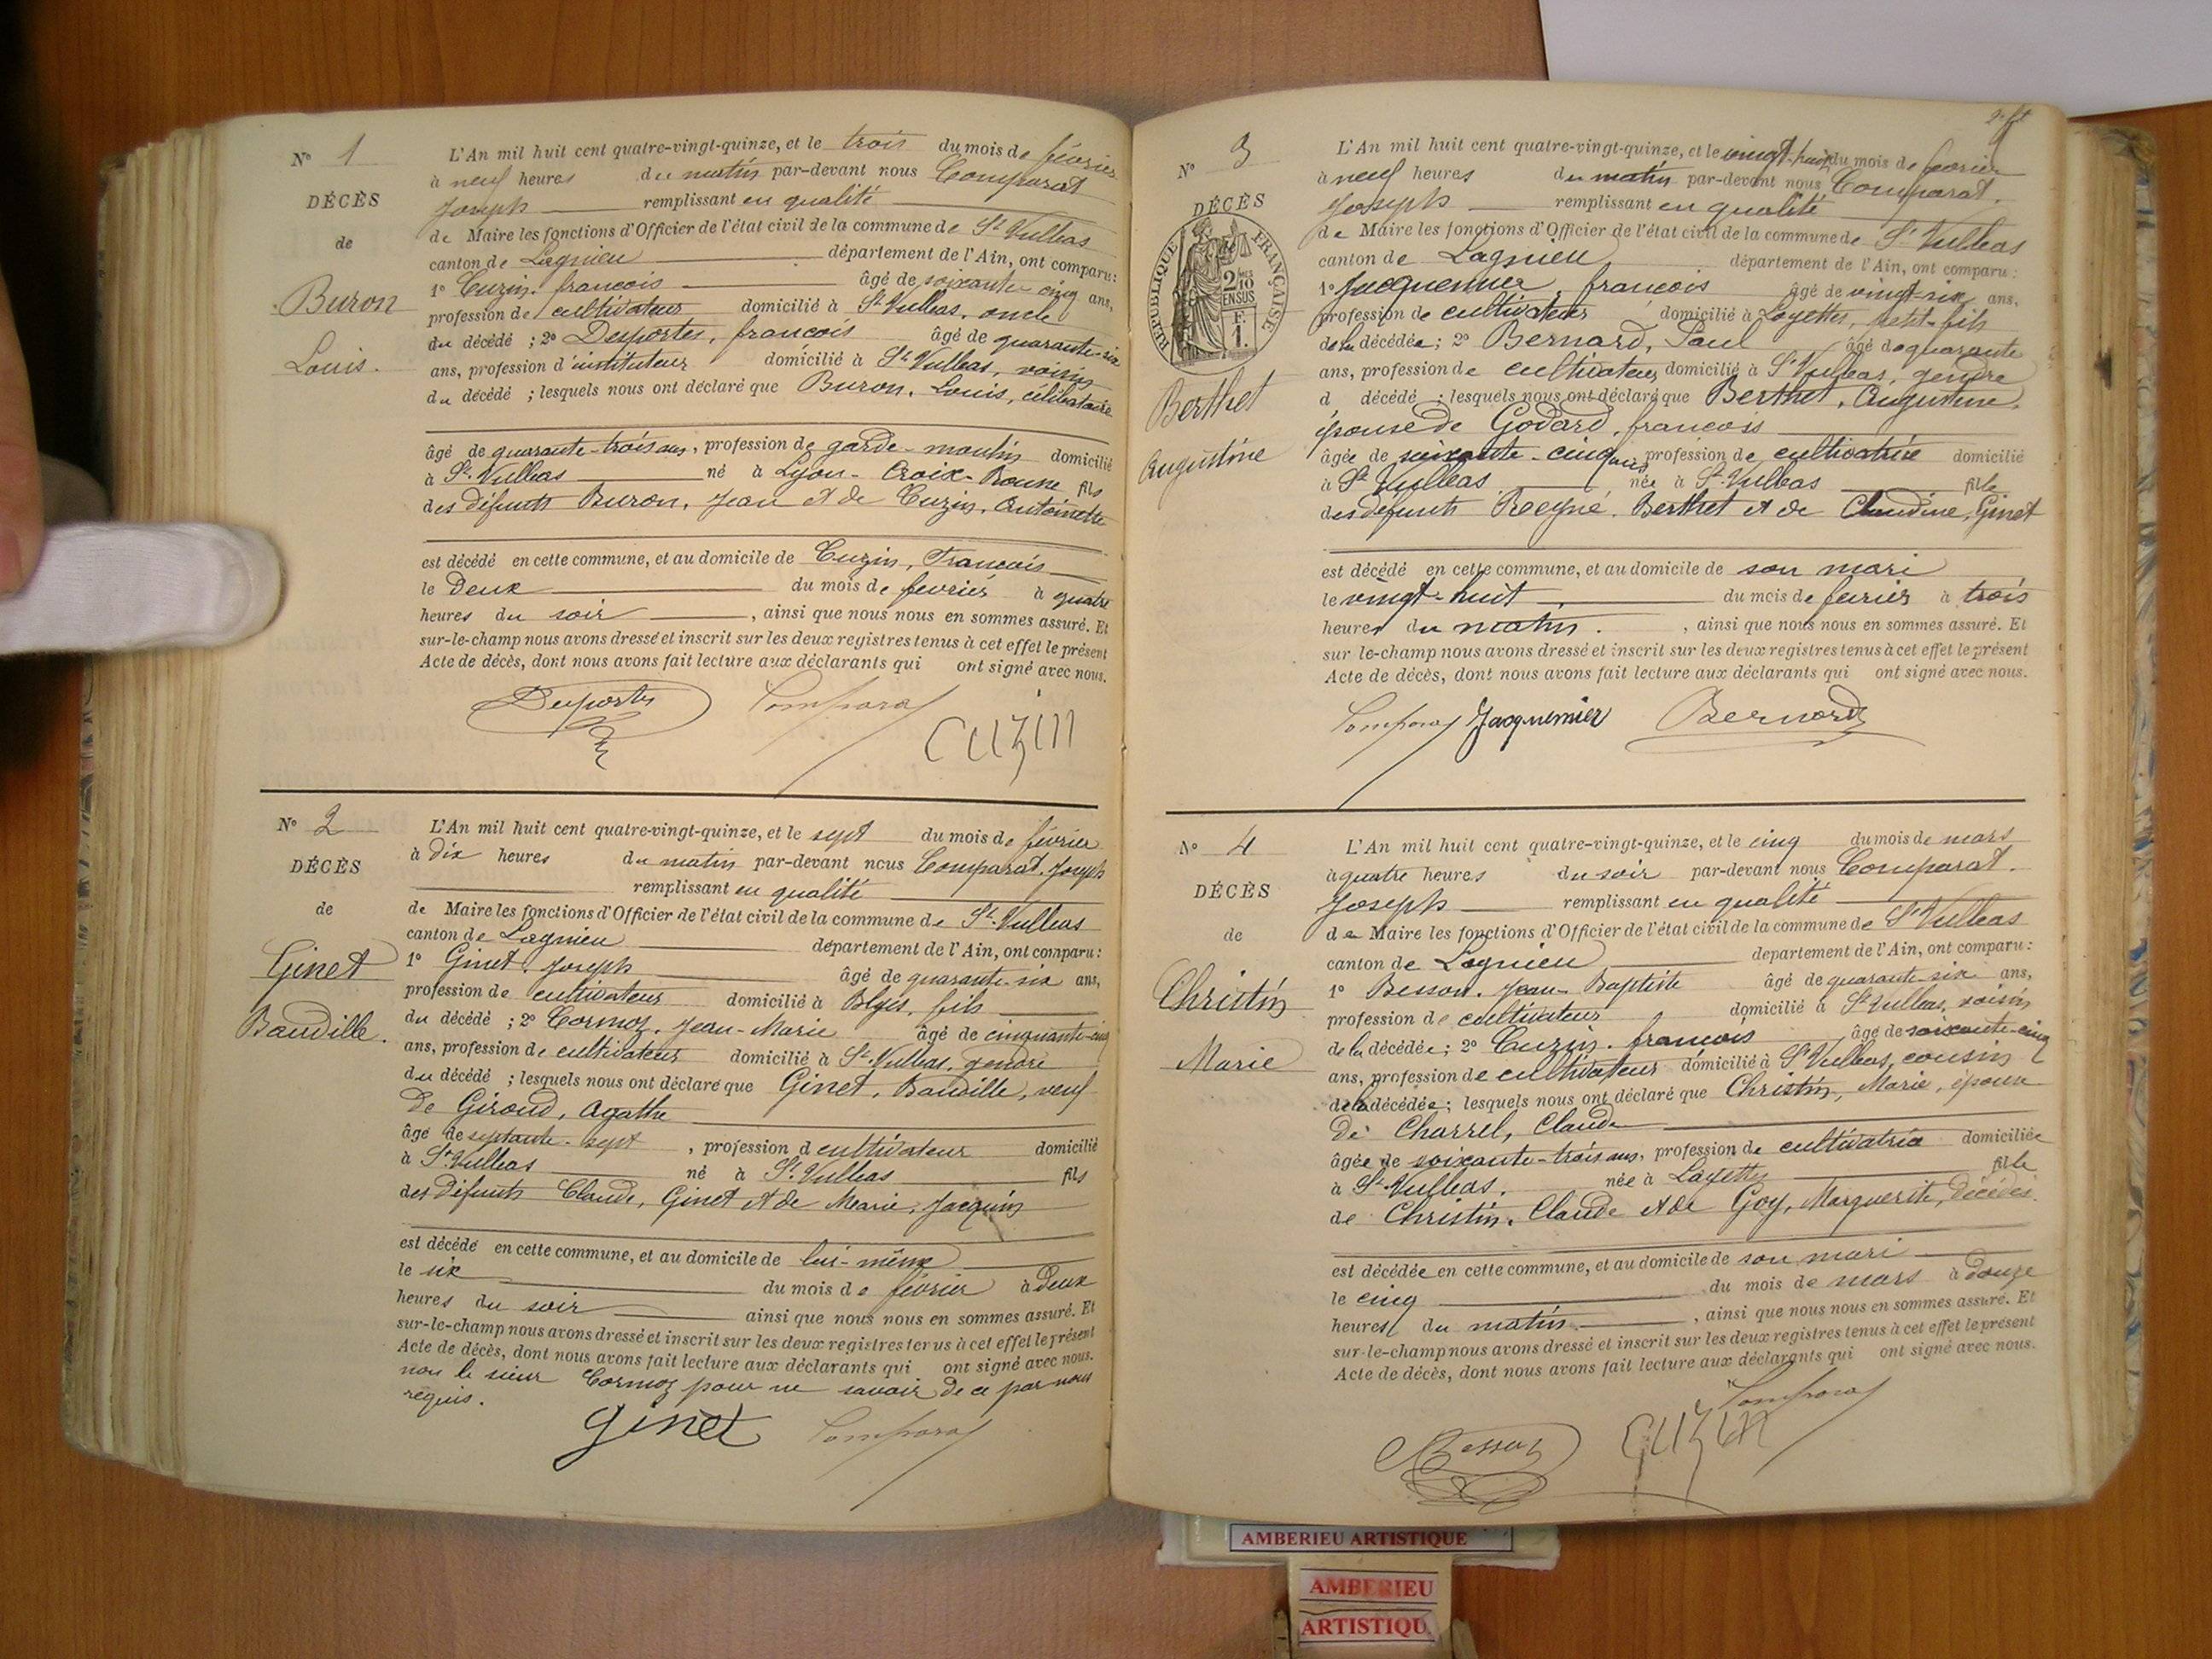 N° 1
DÉCÈS
de
Buron
Louis.
L'An mil huit cent quatre-vingt-quinze, et le trois du mois de février
à neuf heures du matin par-devant nous Comparat
Joseph remplissant en qualité
de Maire les fonctions d'Officier de l'état civil de la commune de St Vulbas
canton de Lagnieu département de l'Ain, ont comparu:
1° Cuzin. françois âgé de soixante-cinq ans,
profession de cultivateur domicilié à St Vulbas, oncle
du décédé ; 2° Desportes, françois âgé de quarante-six
ans, profession d'instituteur domicilié à St Vulbas, voisin
du décédé ; lesquels nous ont déclaré que Buron, Louis, célibataire
âgé de quarante-trois ans, profession de garde-moulin domicilié
à St Vulbas né à Lyon-Croix-Rousse fils
des défunts Buron, Jean et de Cuzin, Antoinette
est décédé en cette commune, et au domicile de Cuzin, François
le Deux du mois de février à quatre
heures du soir , ainsi que nous nous en sommes assuré. Et
sur-le-champ nous avons dressé et inscrit sur les deux registres tenus à cet effet le présent
Acte de décès, dont nous avons fait lecture aux déclarants qui ont signé avec nous.
Desportes Comparat
Cuzin
N° 2
DÉCÈS
de
Ginet
Baudille.
L'An mil huit cent quatre-vingt-quinze, et le sept du mois de février
à dix heures du matin par-devant nous Comparat. Joseph
remplissant en qualité
de Maire les fonctions d'Officier de l'état civil de la commune de St. Vulbas
canton de Lagnieu département de l'Ain, ont comparu:
1° Ginet. Joseph âgé de quarante-six ans,
profession de cultivateur domicilié à Blyes, fils
du décédé ; 2° Cormoz, Jean-Marie âgé de cinquante-cinq
ans, profession de cultivateur domicilié à St. Vulbas, gendre
du décédé ; lesquels nous ont déclaré que Ginet, Baudille, veuf
de Giroud, Agathe
âgé de septante-sept , profession de cultivateur domicilié
à St Vulbas né à St. Vulbas fils
des défunts Claude, Ginet et de Marie, Jacquin
est décédé en cette commune, et au domicile de lui-même
le six du mois de février à deux
heures du soir ainsi que nous nous en sommes assuré. Et
sur-le-champ nous avons dressé et inscrit sur les deux registres tenus à cet effet le présent
Acte de décès, dont nous avons fait lecture aux déclarants qui ont signé avec nous.
non le sieur Cormoz pour ne savoir de ce par nous
requis.
Ginet Comparat
N° 3
DÉCÈS
RÉPUBLIQUE FRANÇAISE
2/10 EN SUS
F.
1.
Berthet
Augustine
L'An mil huit cent quatre-vingt-quinze, et le vingt-huit du mois de février
à neuf heures du matin par-devant nous Comparat.
Joseph remplissant en qualité
de Maire les fonctions d'Officier de l'état civil de la commune de St Vulbas
canton de Lagnieu département de l'Ain, ont comparu:
1° Jacquemier, françois âgé de vingt-six ans,
profession de cultivateur domicilié à Loyettes, petit-fils
de la décédée; 2° Bernard, Paul âgé de quarante
ans, profession de cultivateur domicilié à St Vulbas, gendre
d décédé ; lesquels nous ont déclaré que Berthet, Augustine,
épouse de Godard, françois
âgée de soixante-cinq ans profession de cultivatrice domicilié
à St Vulbas née à St Vulbas fille
des défunts Berthet et de Claudine, Ginet
est décédé en cette commune, et au domicile de son mari
le vingt-huit du mois de février à trois
heures du matin. , ainsi que nous nous en sommes assuré. Et
sur-le-champ nous avons dressé et inscrit sur les deux registres tenus à cet effet le présent
Acte de décès, dont nous avons fait lecture aux déclarants qui ont signé avec nous.
Comparat Jacquemier Bernard
N° 4
DÉCÈS
de
Christin
Marie
L'An mil huit cent quatre-vingt-quinze, et le cinq du mois de mars
à quatre heures du soir par-devant nous Comparat.
Joseph remplissant en qualité
de Maire les fonctions d'Officier de l'état civil de la commune de St Vulbas
canton de Lagnieu département de l'Ain, ont comparu:
1° Besson. Jean-Baptiste âgé de quarante-six ans,
profession de cultivateur domicilié à St Vulbas, voisin
de la décédée; 2° Cuzin. françois âgé de soixante-cinq
ans, profession de cultivateur domicilié à St Vulbas, cousin
de la décédée; lesquels nous ont déclaré que Christin, Marie, épouse
de Charrel, Claude
âgée de soixante-trois ans, profession de cultivatrice domiciliée
à St Vulbas. née à Loyettes fille
de Christin. Claude et de Goy, Marguerite, décédés.
est décédée en cette commune, et au domicile de son mari
le cinq du mois de mars à douze
heures du matin. , ainsi que nous nous en sommes assuré. Et
sur-le-champ nous avons dressé et inscrit sur les deux registres tenus à cet effet le présent
Acte de décès, dont nous avons fait lecture aux déclarants qui ont signé avec nous.
Comparat
Besson Cuzin
AMBERIEU ARTISTIQUE
AMBERIEU
ARTISTIQU